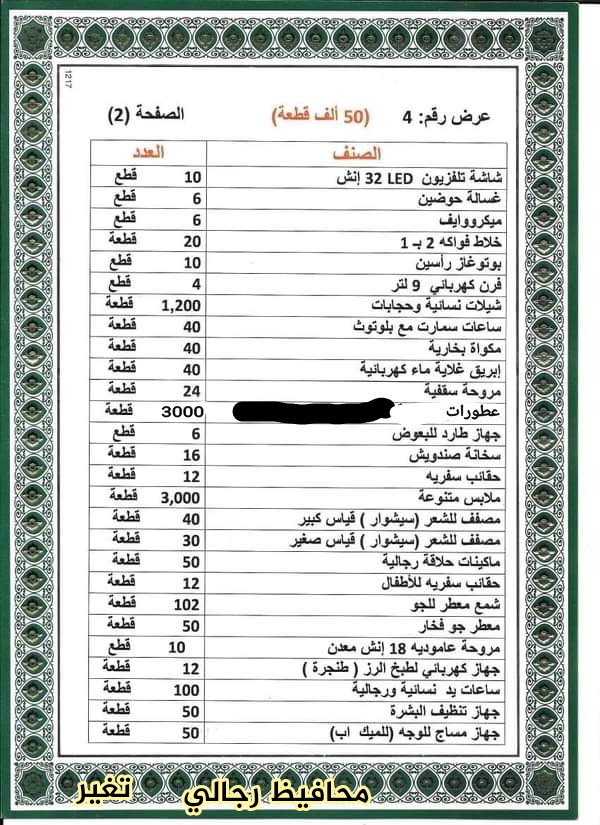 1217
عرض رقم: 4 (50 ألف قطعة) الصفحة (2)
الصنف العدد
شاشة تلفزيون 32 LED إنش 10 قطع
غسالة حوضين 6 قطع
ميكرووايف 6 قطع
خلاط فواكه 2 بـ 1 20 قطعة
بوتوغاز رأسين 10 قطع
فرن كهربائي 9 لتر 4 قطع
شيلات نسائية وحجابات 1,200 قطعة
ساعات سمارت مع بلوتوث 40 قطعة
مكواة بخارية 40 قطعة
إبريق غلاية ماء كهربائية 40 قطعة
مروحة سقفية 24 قطعة
عطورات 3000 قطعة
جهاز طارد للبعوض 6 قطع
سخانة صندويش 16 قطعة
حقائب سفريه 12 قطعة
ملابس متنوعة 3,000 قطعة
مصفف للشعر (سيشوار ) قياس كبير 40 قطعة
مصفف للشعر (سيشوار ) قياس صغير 30 قطعة
ماكينات حلاقة رجالية 50 قطعة
حقائب سفريه للأطفال 12 قطعة
شمع معطر للجو 102 قطعة
معطر جو فخار 50 قطعة
مروحة عاموديه 18 إنش معدن 10 قطع
جهاز كهربائي لطبخ الرز ( طنجرة ) 12 قطعة
ساعات يد نسائية ورجالية 100 قطعة
جهاز تنظيف البشرة 50 قطعة
جهاز مساج للوجه (للميك اب) 50 قطعة
محافيظ رجالي تغير